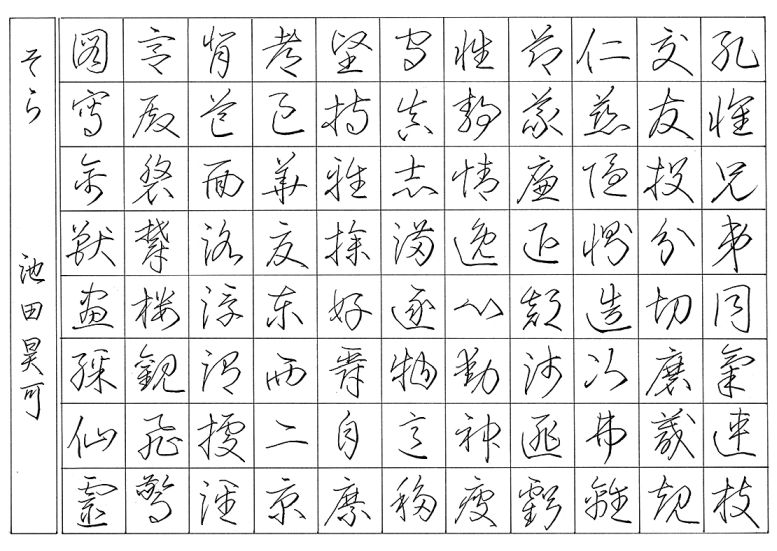 孔懐兄弟同氣連枝
交友投分切磨箴規
仁慈隠惻造次弗離
節義廉退顛沛匪虧
性静情逸心動神疲
守真志満逐物意移
堅持雅操好爵自縻
都邑華夏東西二京
背芒面洛浮渭據涇
宮殿盤欝楼観飛驚
圖寫禽獣畫綵仙靈
そら 池田昊可